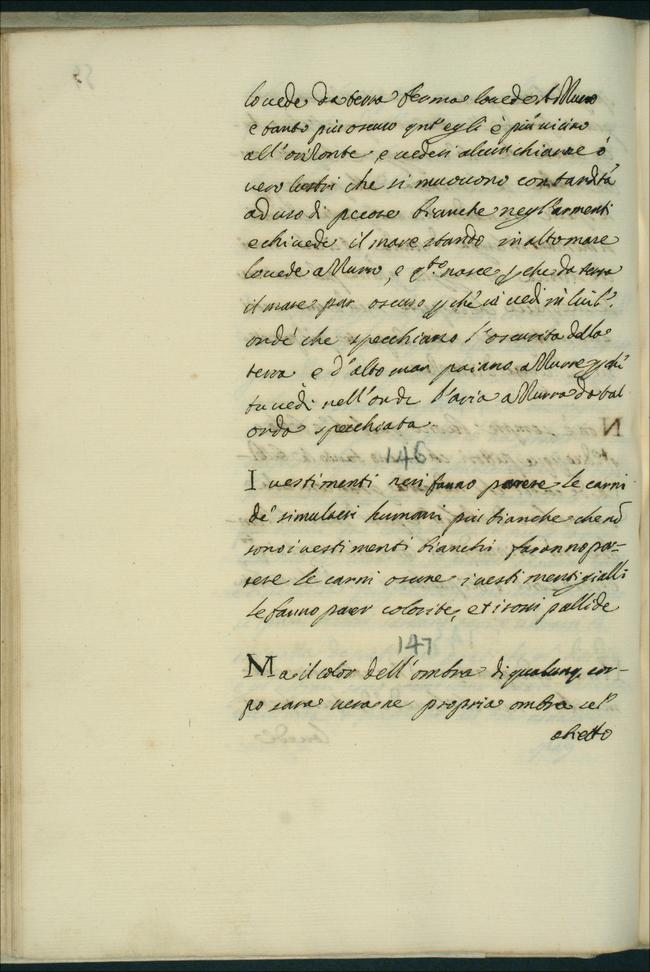 lo vede da terra ferma lo vede Azzurro
e tanto piu oscuro qnt' egli è più vicino
all' orizonte e vedesi alcun chiarore ó
vero lustri che si muovono con tardità
ad uso di pecore bianche negl'armenti
e chi vede il mare stando in alto mare
lo vede azzurro, e qto nasce pche da terra
il mare par oscuro pche vi vedi in
onde che specchiano l'oscurità della
terra e d'alto mar paiano azzurre pche
tu vedi nell'onde l'aria azzurra da tal
onde specchiata
146
I vestimenti neri fanno parere le carni
de' simulacri humani piu bianche che nō
sono i vestimenti bianchi faranno pa=
rere le carni oscure i vestimenti gialli
le fanno parer colorite, et i rossi pallide
147
Ma il color dell'ombra di qualunq. cor-
po sara vera ne propria ombra se l'
obietto